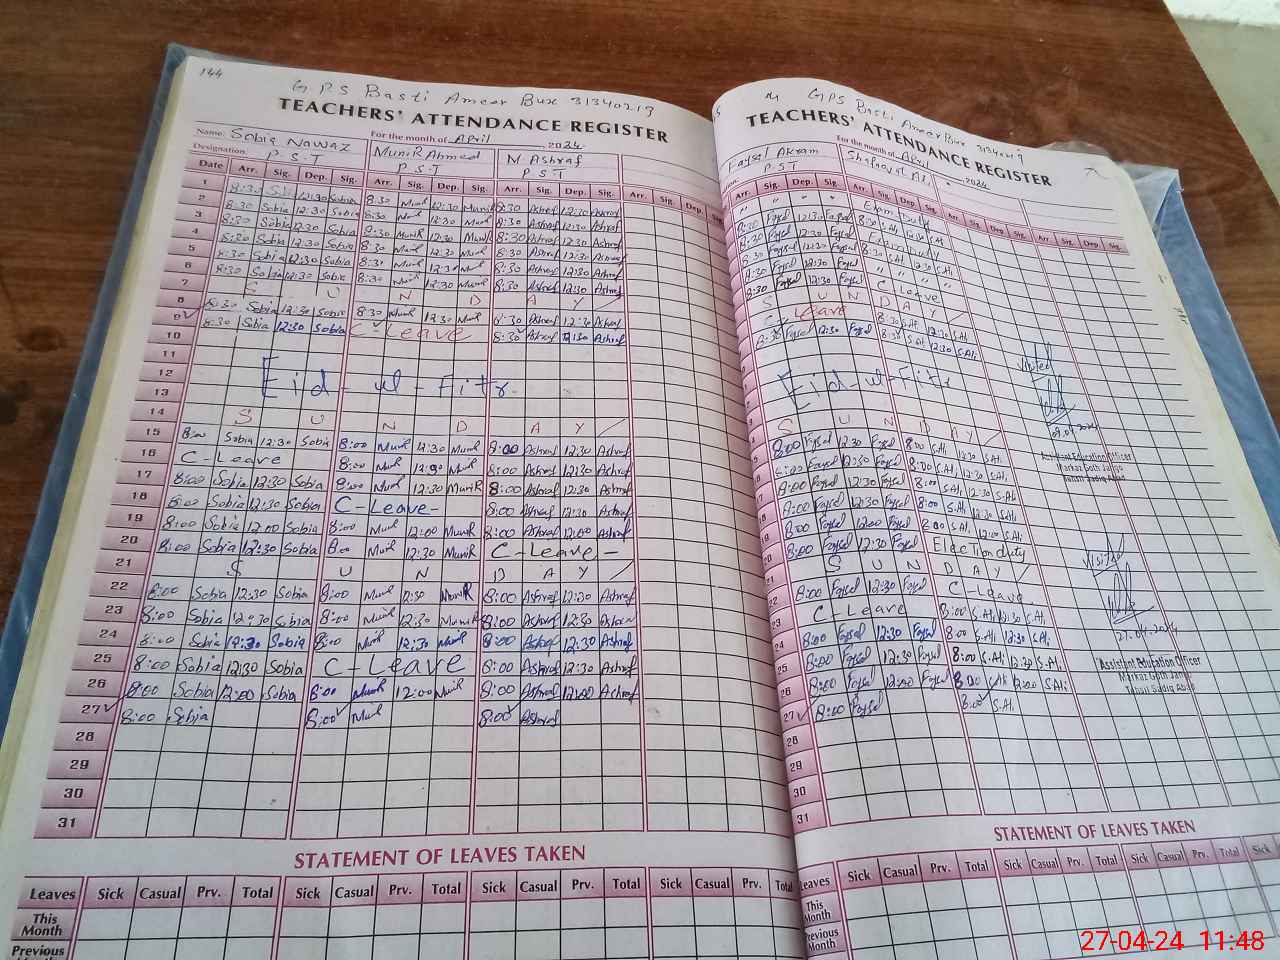 144
GPS Basti Ameer Bux 31340217
TEACHERS' ATTENDANCE REGISTER
Name: Sobia Nawaz
For the month of April 2024
Designation P.S.T
Munir Ahmed
P.S.T
M Ashraf
P S T
Date Arr. Sig. Dep. Sig. Arr. Sig. Dep. Sig. Arr. Sig. Dep. Sig. Arr. Sig. Dep. Sig.
1 8:30 12:30 Sobia 8:30 Munir 12:30 Munir 8:30 Ashraf 12:30 Ashraf
2 8:30 Sobia 12:30 Sobia 8:30 12:30 Munir 8:30 Ashraf 12:30 Ashraf
3 8:30 Sobia 12:30 Sobia 8:30 Munir 12:30 Munir 8:30 Ashraf 12:30 Ashraf
4 8:30 Sobia 12:30 Sobia 8:30 Munir 12:30 Munir 8:30 Ashraf 12:30 Ashraf
5 8:30 Sobia 12:30 Sobia 8:30 Munir 12:30 Munir 8:30 Ashraf 12:30 Ashraf
6 8:30 Sobia 12:30 Sobia 8:30 Munir 12:30 Munir 8:30 Ashraf 12:30 Ashraf
7 S U N D A Y
8 8:30 Sobia 12:30 Sobia 8:30 Munir 12:30 Munir 8:30 Ashraf 12:30 Ashraf
9 8:30 Sobia 12:30 Sobia C Leave 8:30 Ashraf 12:30 Ashraf
10
11
12 Eid-ul-Fitr
13
14 S U N D A Y
15 8:00 Sobia 12:30 Sobia 8:00 Munir 12:30 Munir 8:00 Ashraf 12:30 Ashraf
16 C-Leave 8:00 Munir 12:30 Munir 8:00 Ashraf 12:30 Ashraf
17 8:00 Sobia 12:30 Sobia 8:00 Munir 12:30 Munir 8:00 Ashraf 12:30 Ashraf
18 8:00 Sobia 12:30 Sobia C-Leave- 8:00 Ashraf 12:30 Ashraf
19 8:00 Sobia 12:00 Sobia 8:00 Munir 12:00 Munir 8:00 Ashraf 12:00 Ashraf
20 8:00 Sobia 12:30 Sobia 8:00 Munir 12:30 Munir C-Leave-
21 S U N D A Y
22 8:00 Sobia 12:30 Sobia 8:00 Munir Munir 8:00 Ashraf 12:30 Ashraf
23 8:00 Sobia 12:30 Sobia 8:00 Munir 12:30 Munir 8:00 Ashraf 12:30 Ashraf
24 8:00 Sobia 12:30 Sobia 8:00 Munir 12:30 Munir 8:00 Ashraf 12:30 Ashraf
25 8:00 Sobia 12:30 Sobia C-Leave 8:00 Ashraf 12:30 Ashraf
26 8:00 Sobia 12:00 Sobia 8:00 Munir 12:00 Munir 8:00 Ashraf 12:00 Ashraf
27 8:00 Sobia 8:00 Munir 8:00 Ashraf
28
29
30
31
STATEMENT OF LEAVES TAKEN
Leaves Sick Casual Prv. Total Sick Casual Prv. Total Sick Casual Prv. Total Sick Casual Prv. Total
This Month
Previous Month
GPS Basti Ameer Bux 31340217
TEACHERS' ATTENDANCE REGISTER
For the month of April 2024
Faysal Akram
P.S.T
Arr. Sig. Dep. Sig. Arr. Sig. Dep. Sig. Arr. Sig. Dep. Sig. Arr. Sig. Dep. Sig.
Exam Duty
8:30 Faysal 12:30 Faysal 8:30 S.Ali
8:30 Faysal 12:30 Faysal Exam Duty
8:30 Faysal 12:30 Faysal 8:30 S.Ali 12:30 S.Ali
8:30 Faysal 12:30 Faysal
8:30 Faysal 12:30 Faysal C-Leave
S U N D A Y
C-Leave 8:30 S.Ali 12:30 S.Ali
8:30 Faysal 12:30 Faysal 8:30 S.Ali 12:30 S.Ali
Visited
Eid-ul-Fitr
09.04.2024
S U N D A Y
Assistant Education Officer
Markaz Goth Jango
Tehsil Sadiq Abad
8:00 Faysal 12:30 Faysal 8:00 S.Ali 12:30 S.Ali
8:00 Faysal 12:30 Faysal 8:00 S.Ali 12:30 S.Ali
8:00 Faysal 12:30 Faysal 8:00 S.Ali 12:30 S.Ali
8:00 Faysal 12:30 Faysal 8:00 S.Ali 12:30 S.Ali
8:00 Faysal 12:00 Faysal 8:00 S.Ali 12:00 S.Ali
20 8:00 Faysal 12:30 Faysal Election duty
21 S U N D A Y
Visited
22 8:00 Faysal 12:30 Faysal C-Leave
23 C-Leave 8:00 S.Ali 12:30 S.Ali
24 8:00 Faysal 12:30 Faysal 8:00 S.Ali 12:30 S.Ali
25 8:00 Faysal 12:30 Faysal 8:00 S.Ali 12:30 S.Ali
26 8:00 Faysal 12:00 Faysal 8:00 S.Ali 12:00 S.Ali
27 8:00 Faysal 8:00 S.Ali
Assistant Education Officer
Markaz Goth Jango
Tehsil Sadiq Abad
28
29
30
31
STATEMENT OF LEAVES TAKEN
Leaves Sick Casual Prv. Total Sick Casual Prv. Total Sick Casual Prv. Total Sick
This Month
Previous Month
27-04-24 11:48